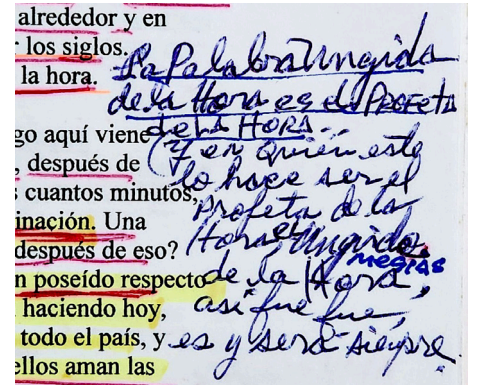 alrededor y en
los siglos.
la hora.
go aquí viene
, después de
cuantos minutos,
inación. Una
después de eso?
n poseído respecto
haciendo hoy,
todo el país, y
ellos aman las
La Palabra Ungida
de la Hora es el PROFETA
de la HORA...
(Y en quién esté
lo hace ser el
Profeta de la
Hora, el Ungido,
mesías
de la Hora,
así fue fue,
es y será siempre.